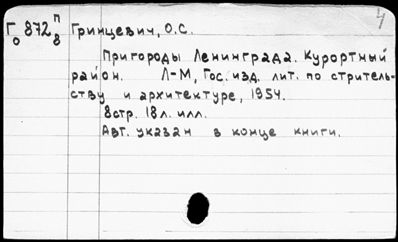 Г 872 п/8 Гринцевич, О.С.
о
Пригороды Ленинграда. Курортный
район. Л-М, Гос. изд. лит. по стритель-
ству и архитектуре, 1954.
8стр. 18л. илл.
Авт. указан в конце книги.